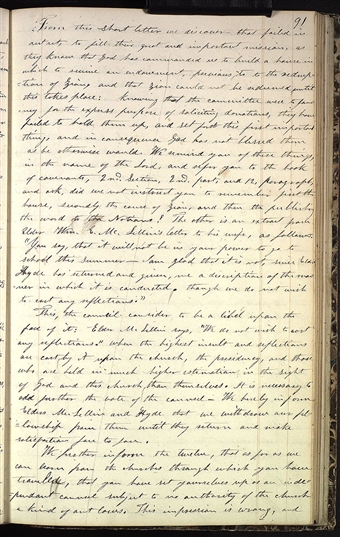 91
From this short letter we discover that failed in
out to fill this great and important mission, as
they knew that God has commanded us to build a house in
which to receive an endowment, previous to the redemp-
tion of Zion; and that Zion could not be redeemed until
this takes place: knowing that the committee were to jour-
ney for the express purpose of soliciting donations, they have
failed to hold them up, and set forth this first important
thing, and in consequence God has not blessed them
as he otherwise would. We remind you of these things,
in the name of the Lord, and refer you to the book
of covenants, 2nd Section, 2nd part, and 12, paragraph
and ask, did we not instruct you to remember first the
house, secondly the cause of Zion, and then the publishing
the word to the Nations? The other is an extract from
Elder Wm. E. Mc Lellin's letter to his wife, as follows.
"You say, that it will not be in your power to go to
school this summer — I am glad that it is not, since Elder
Hyde has returned and given me a description of the man-
ner in which it is conducted, though we do not wish
to cast any reflections."
This, the council consider to be a libel upon the
face of it. Elder Mc Lellin says, "We do not wish to cast
any reflections." when the highest insult and reflections
are cast by it upon the church, the presidency, and those
who are held in much higher estimation in the sight
of God and this church than themselves. It is necessary to
add further the vote of the council - We hereby inform
Elders Mc Lellin and Hyde that we withdraw our fel-
-lowship from them until they return and make
satisfaction face to face.
We further inform the twelve, that as far as we
can learn from the churches through which you have
travelled, that you have set yourselves up as an inde-
pendant council subject to no authority of the church
a kind of out laws. This impression is wrong, and